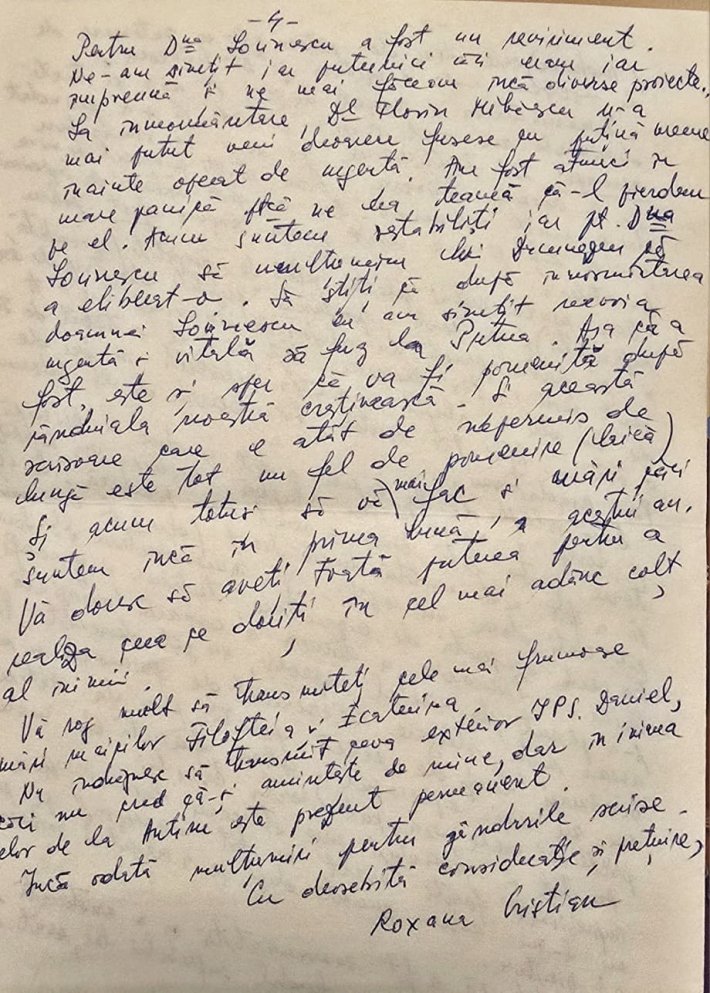 -4-
Pentru Dna Sorinescu a fost un reviriment.
Ne-am simțit iar puternici căci eram iar
împreună și ne mai făceam încă diverse proiecte.
La înmormântare, Dl Florin Mihăescu n-a
mai putut veni deoarece fusese cu puțină vreme
înainte operat de urgență. Am fost atunci în
mare panică că ne era teamă că-l pierdem
pe el. Acum suntem restabiliți iar pt. Dna
Sorinescu să mulțumim lui Dumnezeu că
a eliberat-o. Să știți că după înmormântarea
doamnei Sorinescu eu am simțit nevoia
urgentă și vitală să fug la Putna. Așa că a
fost, este și sper că va fi pomenită după
rânduiala noastră creștinească. Și această
scrisoare care e atât de nepermis de
lungă este tot un fel de pomenire (laică)
Și acum totuși să vă mai fac și urări căci
suntem încă în prima lună a acestui an.
Vă doresc să aveți toată puterea pentru a
realiza ceea ce doriți în cel mai adânc colț
al inimii.
Vă rog mult să transmiteți cele mai frumoase
urări maicilor Filofteia și Ecaterina.
Nu îndrăznesc să transmit ceva exterior IPS. Daniel,
căci nu cred că-și amintește de mine, dar în inima
celor de la Antim este prezent permanent.
Încă odată mulțumiri pentru gândurile scrise.
Cu deosebită considerație și prețuire,
Roxana Cristian